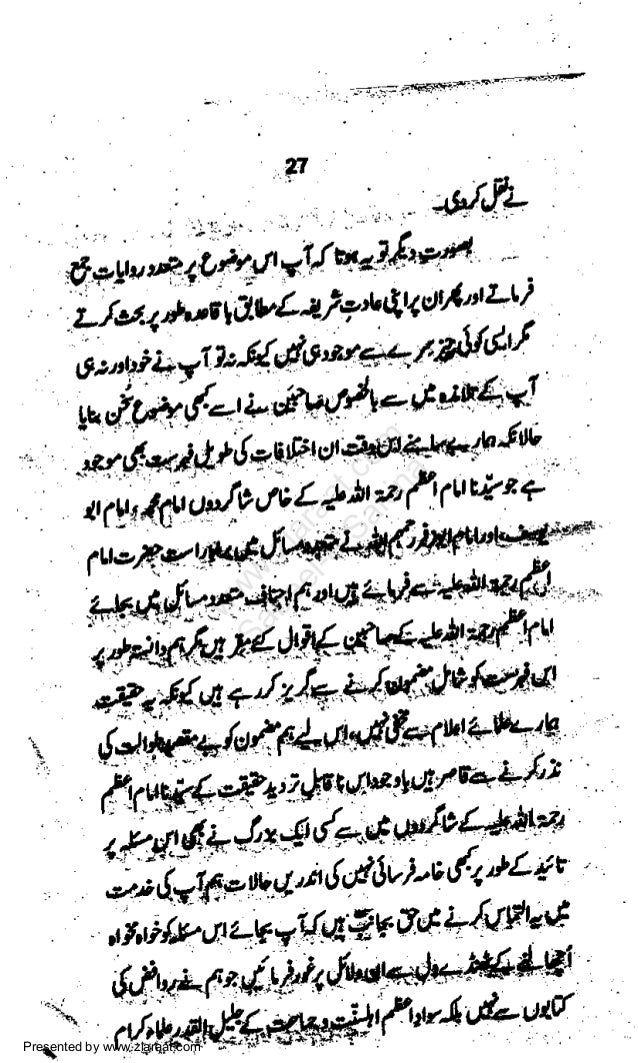 27
نے نقل کر دی۔
بصورتِ دیگر تو یہ ہوتا کہ آپ اس موضوع پر متعدد روایات جمع
فرماتے اور پھر ان پر اپنی عادتِ شریفہ کے مطابق باقاعدہ طور پر بحث کرتے
مگر ایسی کوئی چیز سرے سے موجود ہی نہیں کیونکہ نہ تو آپ نے خود اور نہ ہی
آپ کے تلامذہ میں سے بالخصوص صاحبین نے اسے کبھی موضوع سخن بنایا
حالانکہ ہمارے سامنے اس وقت ان اختلافات کی طویل فہرست بھی موجود
ہے جو سیّدنا امام اعظم رحمۃ اللہ علیہ کے خاص شاگردوں امام محمد، امام ابو
یوسف، اور امام زفر رحمہم اللہ نے متعدد مسائل میں براہ راست حضرت امام
اعظم رحمۃ اللہ علیہ سے فرمائے ہیں اور ہم احناف متعدد مسائل میں بجائے
امام اعظم رحمۃ اللہ علیہ کے صاحبین کے اقوال کے مقر ہیں مگر ہم دانستہ طور پر
اس فہرست کو شامل مضمون کرنے سے گریز کر رہے ہیں کیونکہ یہ حقیقت
ہمارے علمائے اعلام سے مخفی نہیں، اس لیے ہم مضمون کو بے مقصد طوالت کی
نذر کرنے سے قاصر ہیں باوجود اس ناقابلِ تردید حقیقت کے سیّدنا امام اعظم
رحمۃ اللہ علیہ کے شاگردوں میں سے کسی ایک بزرگ نے بھی اس مسئلہ پر
تائید کے طور پر کبھی خامہ فرسائی نہیں کی اندریں حالات ہم آپ کی خدمت
میں یہ التماس کرنے میں حق بجانب ہیں کہ آپ بجائے اس مسئلہ کو خواہ مخواہ
اُچھالنے کے ٹھنڈے دل سے ان دلائل پر غور فرمائیں جو ہم نے روافض کی
کتابوں سے نہیں بلکہ سوادِ اعظم اہلسنّت و جماعت کے جلیل القدر علماء کرام
Presented by www.ziaraat.com